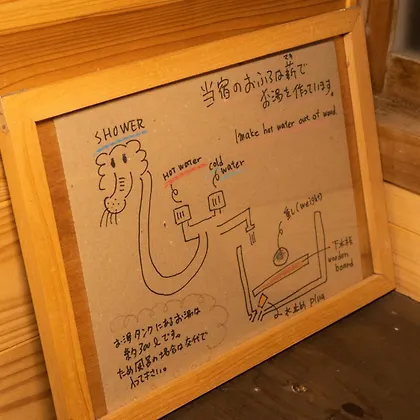 当宿のおふろは薪で
まき
お湯を作っています。
I make hot water out of wood.
SHOWER
Hot water
cold
water
重し(weight)
wooden
board
水止め plug
お湯タンクにあるお湯は
約300ℓです。
ため風呂の場合は交代で
入って下さい。